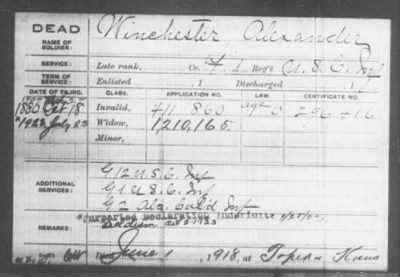 DEAD
NAME OF SOLDIER:
Winchester Alexander
SERVICE:
Late rank, Co. 1 Reg't U.S.C. Inf
TERM OF SERVICE:
Enlisted , 1 Discharged , 1
DATE OF FILING. CLASS. APPLICATION NO. LAW. CERTIFICATE NO.
1880 Oct 18 Invalid, 411 860 296 416
1923 July 23 Widow, 1,210,165.
Minor,
ADDITIONAL SERVICES:
G 12 U.S.C. Inf
G 1 U.S.C. Inf
G 2 Ala. Col'd Inf
Declaration
June 1, 1918, at Topeka Kans